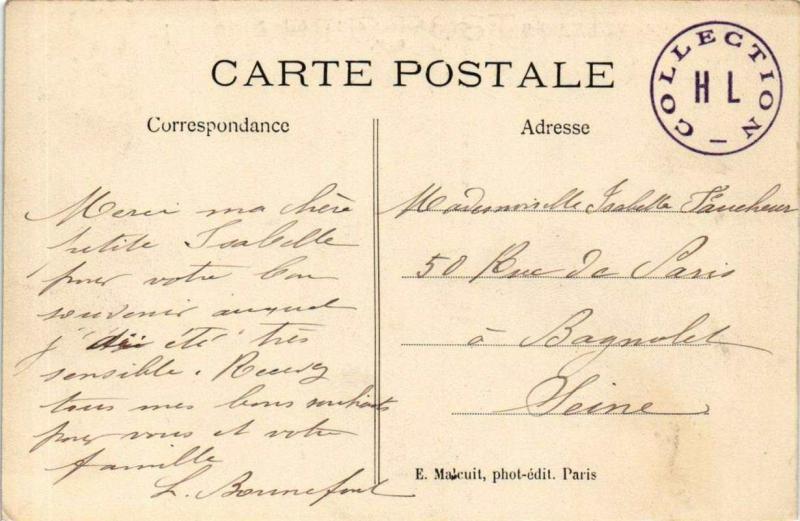 CARTE POSTALE
COLLECTION
H L
Correspondance
Adresse
Merci ma chère
petite Isabelle
pour votre bon
souvenir auquel
j' ai été très
sensible. Recevez
tous mes bons souhaits
pour vous et votre
famille
L. Bonnefont
Mademoiselle Isabelle Faucheur
50 Rue de Paris
à Bagnolet
Seine
E. Malcuit, phot-édit. Paris